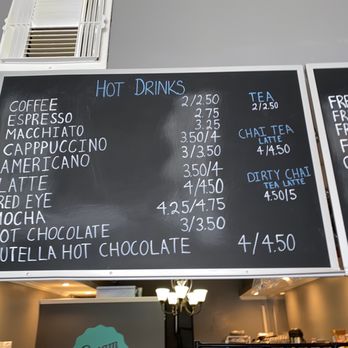 HOT DRINKS
COFFEE 2/2.50
ESPRESSO 2.75
MACCHIATO 3.25
CAPPPUCCINO 3.50/4
AMERICANO 3/3.50
LATTE 3.50/4
RED EYE 4/4.50
MOCHA 4.25/4.75
HOT CHOCOLATE 3/3.50
UTELLA HOT CHOCOLATE 4/4.50
TEA
2/2.50
CHAI TEA
LATTE
4/4.50
DIRTY CHAI
TEA LATTE
4.50/5
FRE
FR
FR
FR